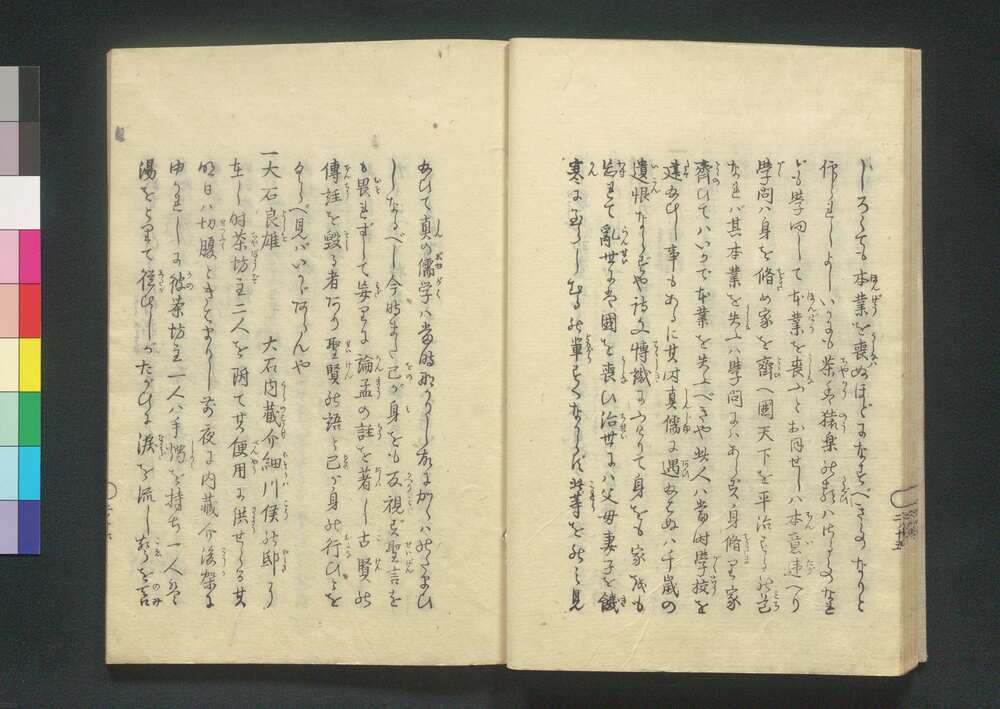 しろくても本業を喪ぬほどになすべきものなりと
作られしよしいかにも茶や猿楽の類ハはさもあるなれ
ども学問して本業を喪ふとおほせしハ本意違へり
学問ハ身を脩め家を齊へ國天下を平治するの道
なれバ其本業を失ふハ学問にハあらず身脩り家
齊ひてハいかで本業を失ふべきや此人ハ當時学校を
建なひし事もあるに其時真儒に遇なはぬハ千歳の
遺恨ならずや詩文博識にふけりて身をも家をも
忘れて亂世にハ國を喪ひ治世にハ父母妻子を饑
寒に至らしむるの輩すくなからず此等をのミ見
なひて真の儒学ハ當時
しなるべし今時また己が身をも反視ず聖言を
も畏れずして妄りに論孟の註を著し古賢の
傳註を毀る者あり聖賢の語と己が身の行ひとを
くらべ見バいかゞあらんや
一大石良雄 大石内蔵介細川侯の邸に
在し時茶坊主二人を附て其便用に供せらる其
明日ハ切腹ときはまりし前夜に内藏介後架に
ゆかれしに彼茶坊主一人ハ手燭を持ち一人ハ
湯をとりて従ひしがたがひに涙を流し